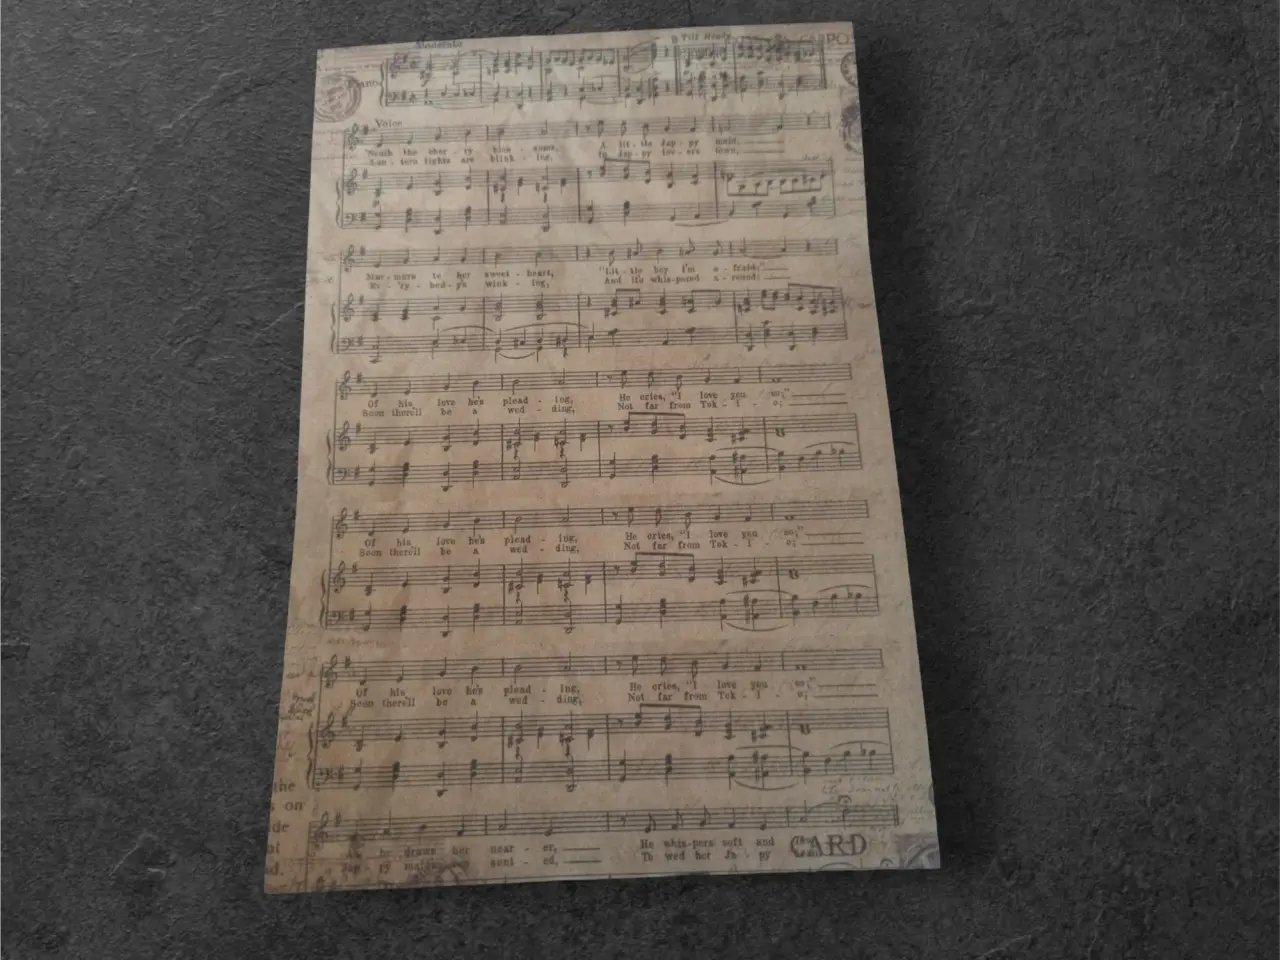 Moderato
Till Ready
Piano
Voice
'Neath the cher - ry blos - soms, A lit - tle Jap - py maid,
Lan - tern lights are blink - ing, In Jap - py lov - ers town,
Mur - murs to her sweet - heart, "Lit - tle boy I'm a - fraid;"
Ev - 'ry - bod - y's wink - ing, And it's whis - pered a - round:
Of his love he's plead - ing, He cries, "I love you so;"
Soon there'll be a wed - ding, Not far from Tok - i - o;
Of his love he's plead - ing, He cries, "I love you so;"
Soon there'll be a wed - ding, Not far from Tok - i - o;
Of his love he's plead - ing, He cries, "I love you so;"
Soon there'll be a wed - ding, Not far from Tok - i - o;
the
on
he draws her near - er, He whis - pers soft and
Jap - py ed, To wed her Ja - py
CARD